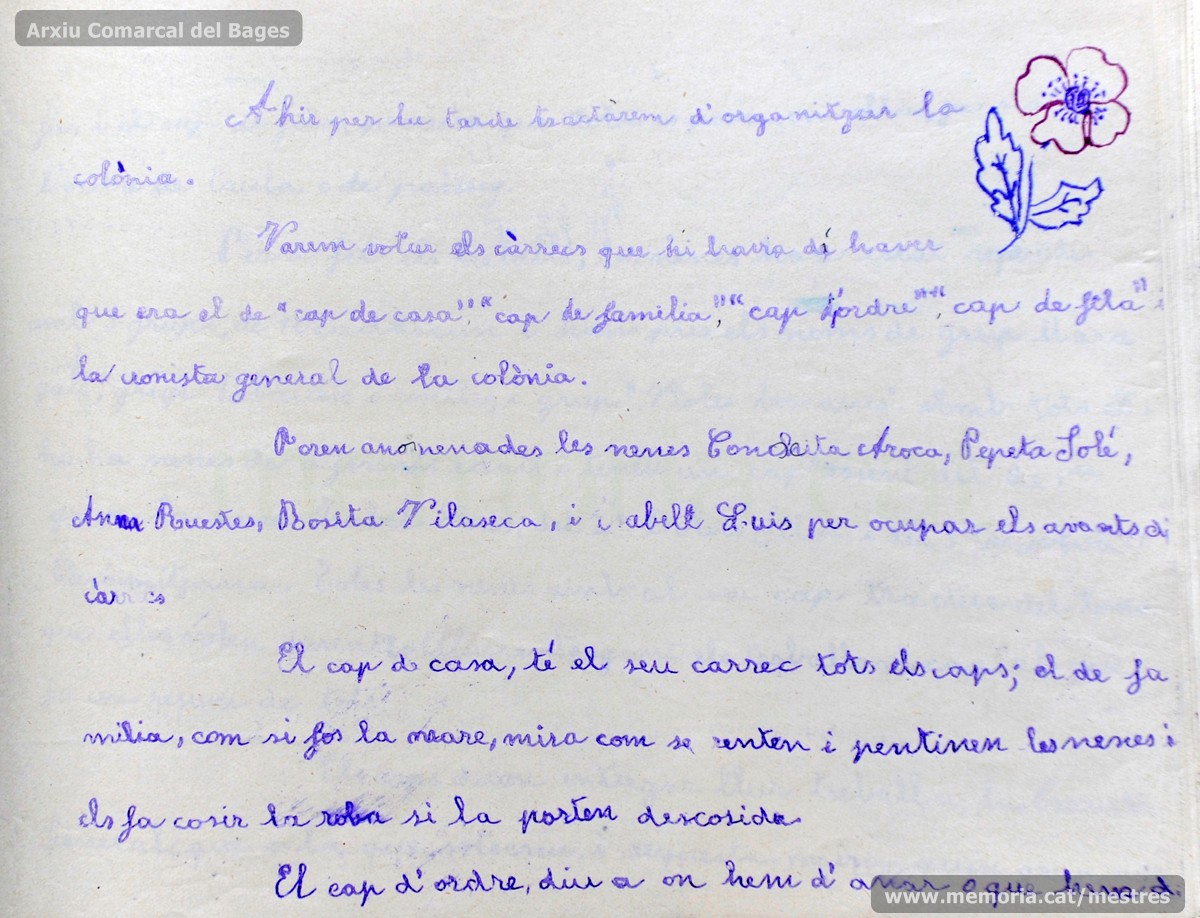 Arxiu Comarcal del Bages
Ahir per la tarde tractàrem d'organitzar la
colònia.
Varem votar els càrrecs que hi havia d'haver
que era el de "cap de casa", "cap de familia", "cap d'ordre", "cap de fila" i
la cronista general de la colònia.
Foren anomenades les nenes Conchita Aroca, Pepeta Solé,
Anna Ruestes, Rosita Vilaseca, i isabell Luis per ocupar els avantsdi
càrrecs
El cap de casa, té el seu carrec tots els caps; el de fa
milia, com si fos la mare, mira com se renten i pentinen les nenes i
els fa cosir la roba si la porten descosida.
El cap d'ordre, diu a on hem d'anar o què hem d
www.memoria.cat/mestres